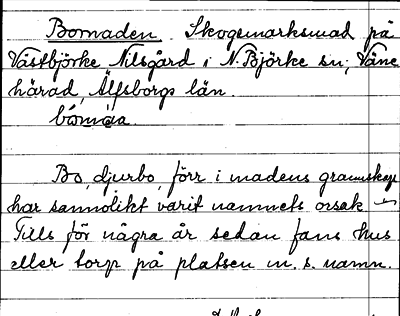 Bomaden. Skogsmarksmad på
Västbjörke Nilsgård i N. Björke sn; Väne
härad, Älfsborgs län.
Bo, djurbo, förr i madens grannskap
har sannolikt varit namnets orsak
Tills för några år sedan fans hus
eller torp på platsen m. s. namn.